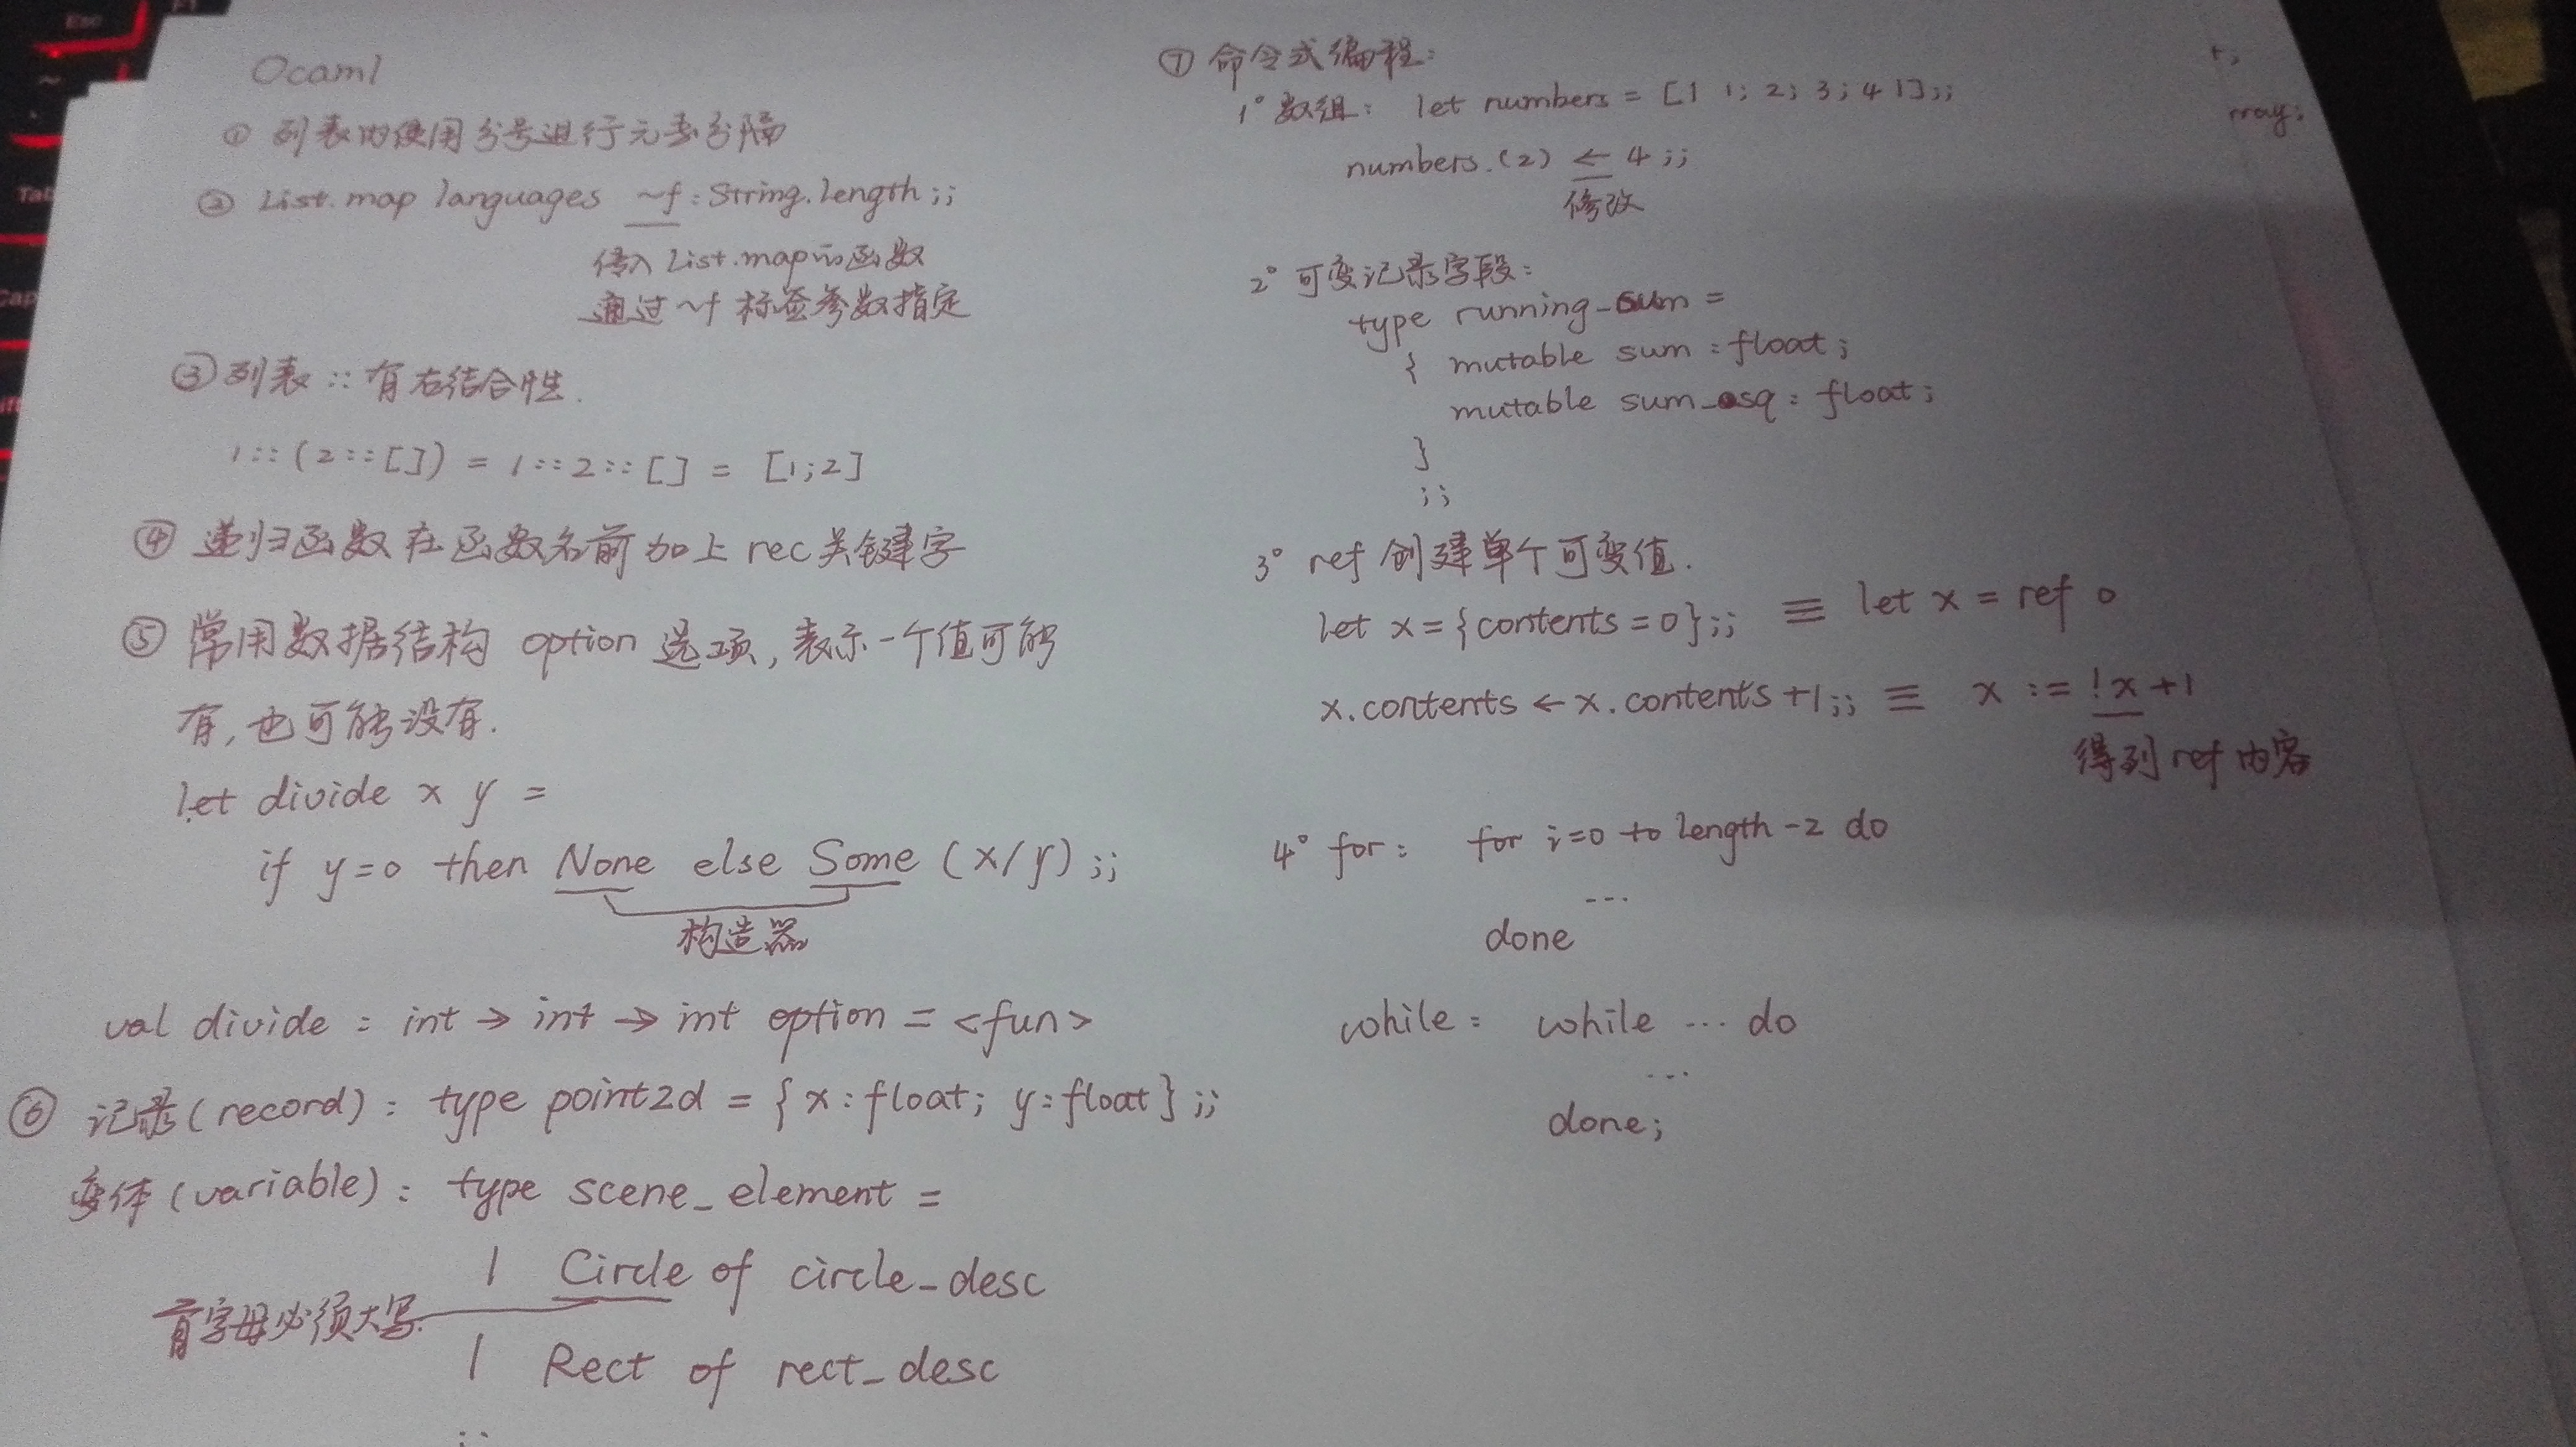 Ocaml
① 列表内使用分号进行元素分隔
② List.map languages ~f:String.length;;
传入List.map的函数
通过~f 标签参数指定
③ 列表 :: 有右结合性.
1::(2::[]) = 1::2::[] = [1;2]
④ 递归函数在函数名前加上rec关键字
⑤ 常用数据结构 option 选项, 表示一个值可能
有, 也可能没有.
let divide x y =
if y=0 then None else Some (x/y);;
构造器
val divide : int → int → int option = <fun>
⑥ 记录(record): type point2d = {x:float; y:float};;
变体(variable): type scene_element =
| Circle of circle_desc
首字母必须大写.
| Rect of rect_desc
;;
⑦ 命令式编程:
1° 数组: let numbers = [| 1; 2; 3; 4 |];;
numbers.(2) ← 4;;
修改
2° 可变记录字段:
type running_sum =
{ mutable sum : float;
mutable sum_sq : float;
}
;;
3° ref 创建单个可变值.
let x = {contents = 0};; ≡ let x = ref 0
x.contents ← x.contents +1;; ≡ x := !x +1
得到ref内容
4° for: for i=0 to length-2 do
...
done
while: while ... do
...
done;